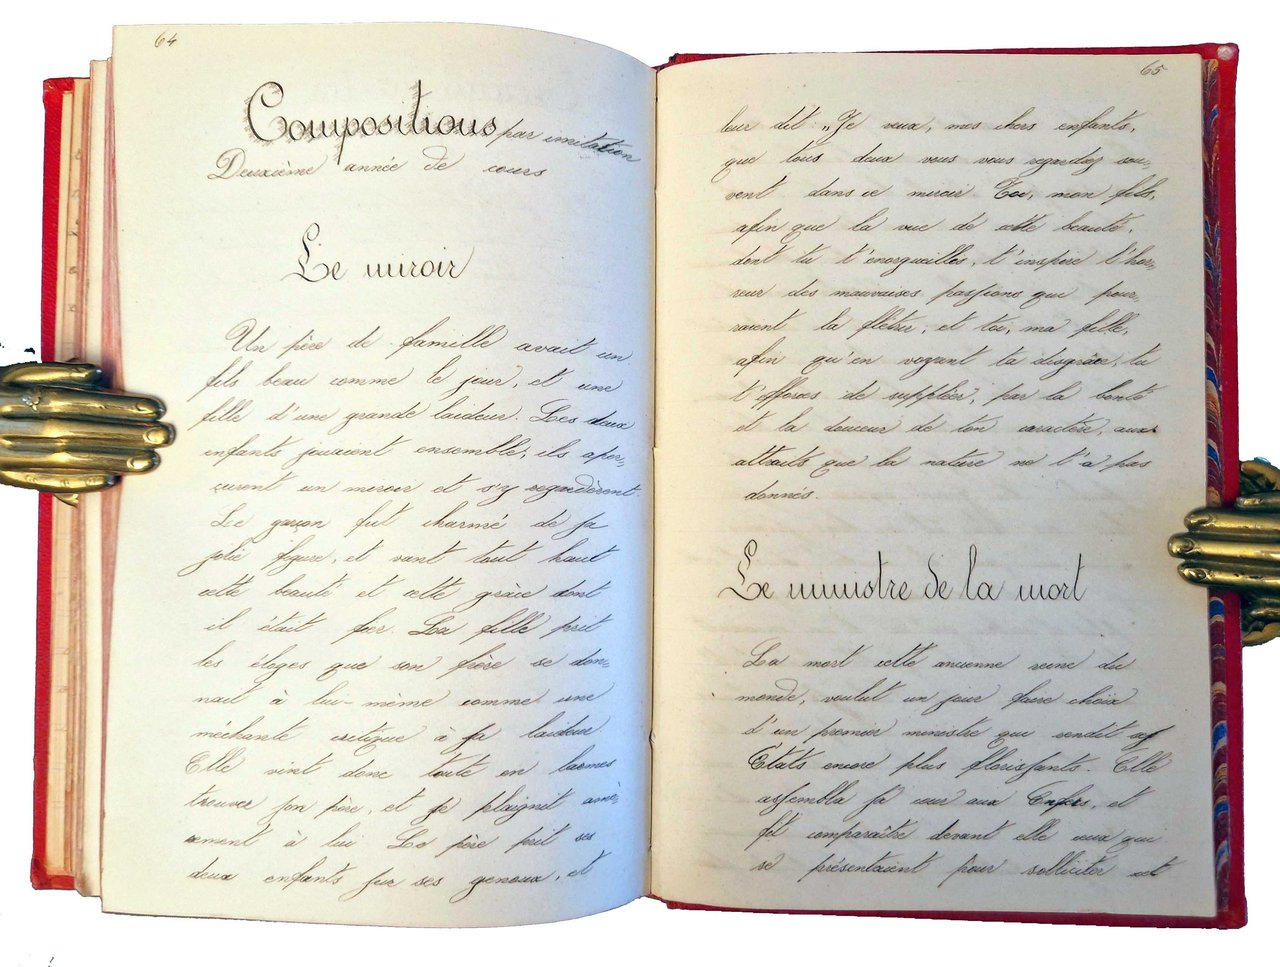 64
Compositions par imitation
Deuxième année de cours
Le miroir
Un père de famille avait un
fils beau comme le jour, et une
fille d'une grande laideur. Les deux
enfants jouaient ensemble, ils aper-
çurent un miroir et s'y regardèrent.
Le garçon fut charmé de sa
jolie figure, et vant tout haut
cette beauté et cette grâce dont
il était fier. La fille prit
les éloges que son frère se don-
nait à lui-même comme une
méchante critique à sa laideur
Elle vint donc toute en larmes
trouver son père, et se plaignit amè-
rement à lui Le père prit ses
deux enfants sur ses genoux, et
65
leur dit „Je veux, mes chers enfants,
que tous deux vous vous regardiez sou-
vent dans ce miroir Toi, mon fils,
afin que la vue de cette beauté,
dont tu t'enorgueilles, t'inspire l'hor-
reur des mauvaises passions qui pour-
raient la flétrir, et toi, ma fille,
afin qu'en voyant ta disgrâce, tu
t'efforces de suppléer, par la bonté
et la douceur de ton caractère, aux
attraits que la nature ne t'a pas
donnés.
Le ministre de la mort
La mort cette ancienne reine du
monde, voulut un jour faire choix
d'un premier ministre qui rendit ses
États encore plus florissants. Elle
assembla sa cour aux Enfers, et
fit comparaître devant elle ceux qui
se présentaient pour solliciter cet